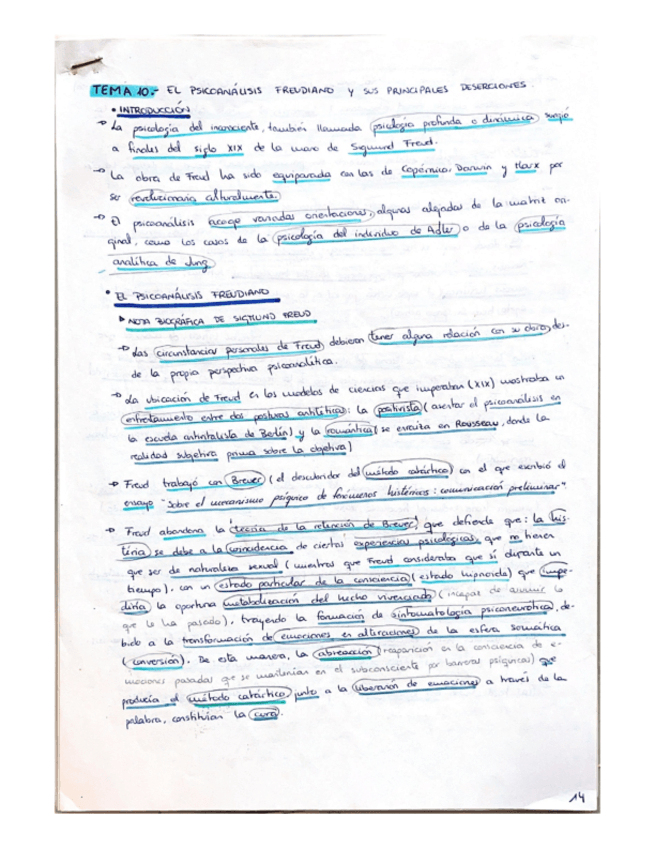 TEMA 10.- EL PSICOANÁLISIS FREUDIANO Y SUS PRINCIPALES DESERCIONES.
• INTRODUCCIÓN
→ La psicología del inconsciente, también llamada psicología profunda o dinámica surgió
a finales del siglo XIX de la mano de Sigmund Freud.
→ La obra de Freud ha sido equiparada con las de Copérnico, Darwin y Marx por
ser revolucionaria culturalmente.
→ El psicoanálisis acoge variadas orientaciones, algunas alejadas de la matriz ori-
ginal, como los casos de la psicología del individuo de Adler o de la psicología
analítica de Jung
• EL PSICOANÁLISIS FREUDIANO
▸ NOTA BIOGRÁFICA DE SIGMUND FREUD
→ Las circunstancias personales de Freud debieron tener alguna relación con su obra, des-
de la propia perspectiva psicoanalítica.
→ La ubicación de Freud en los modelos de ciencias que imperaban (XIX) mostraba un
enfrentamiento entre dos posturas antitéticas: la positivista (asentar el psicoanálisis en
la escuela antivitalista de Berlín) y la romántica (se enraíza en Rousseau, donde la
realidad subjetiva prima sobre la objetiva)
→ Freud trabajó con Breuer (el descubridor del método catártico) con el que escribió el
ensayo "Sobre el mecanismo psíquico de fenómenos histéricos: comunicación preliminar".
→ Freud abandona la teoría de la retención de Breuer, que defiende que: la his-
teria se debe a la coincidencia de ciertas experiencias psicológicas, que no tienen
que ser de naturaleza sexual (mientras que Freud consideraba que sí durante un
tiempo), con un estado particular de la consciencia (estado hipnoide) que impe-
diría la oportuna metabolización del hecho vivenciado (incapaz de asumir lo
que le ha pasado), trayendo la formación de sintomatología psiconeurótica, de-
bido a la transformación de emociones en alteraciones de la esfera somática
(conversión). De esta manera, la abreacción (reaparición en la consciencia de e-
mociones pasadas que se mantenían en el subconsciente por barreras psíquicas) que
producía el método catártico junto a la liberación de emociones a través de la
palabra, constituían la cura.
14